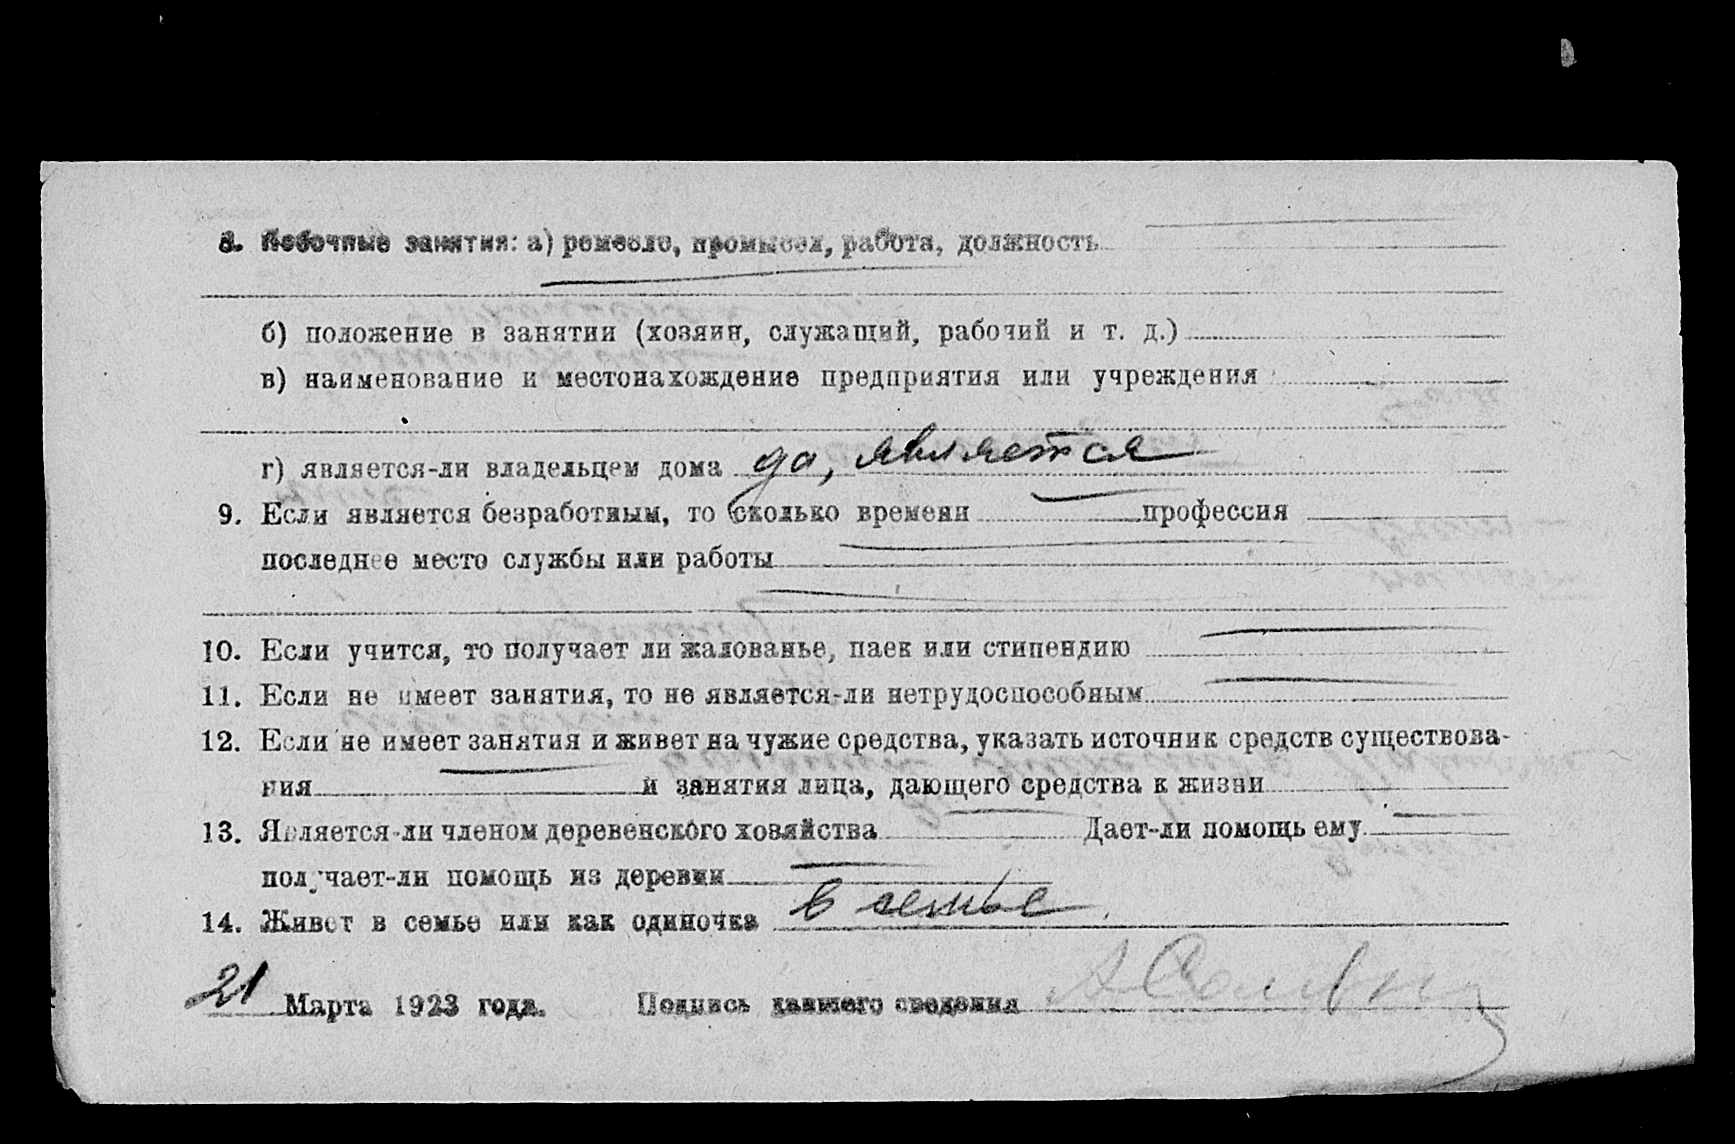 8. Побочные занятия: а) ремесло, промысел, работа, должность
б) положение в занятии (хозяин, служащий, рабочий и т. д.)
в) наименование и местонахождение предприятия или учреждения
г) является-ли владельцем дома да, является
9. Если является безработным, то сколько времени профессия
последнее место службы или работы
10. Если учится, то получает ли жалованье, паек или стипендию
11. Если не имеет занятия, то не является-ли нетрудоспособным
12. Если не имеет занятия и живет на чужие средства, указать источник средств существова-
ния и занятия лица, дающего средства к жизни
13. Является-ли членом деревенского хозяйства Дает-ли помощь ему
получает-ли помощь из деревни
14. Живет в семье или как одиночка в семье
21 Марта 1923 года. Подпись давшего сведения А